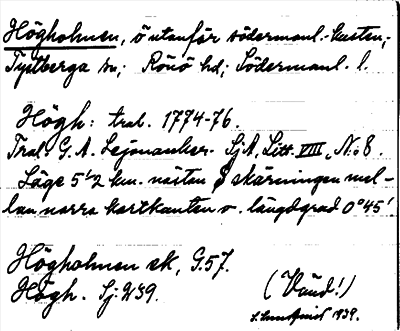 Högholmen, ö utanför södermanl. kusten;
Tystberga sn; Rönö hd; Södermanl. l.
Högh: trol. 1774-76.
Trol. G. A. Lejonanker. SjA, Litt. VIII, No 8.
Läge 5 1/2 km. nästan S skärningen mel-
lan norra kartkanten o. längdgrad 0°45'
Högholmen ek, G.57.
Högh. Sj. 239.
(Vänd!)
1939.